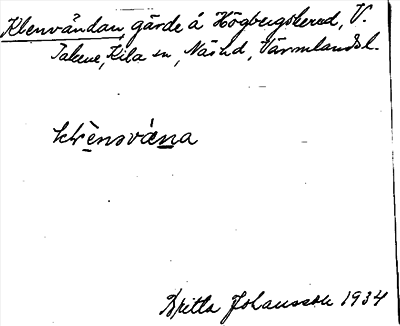 Klenvåndan, gärde å Högbergskerud, V.
Takene, Kila sn, Näs hd, Värmlands l.
Britta Johansson 1934